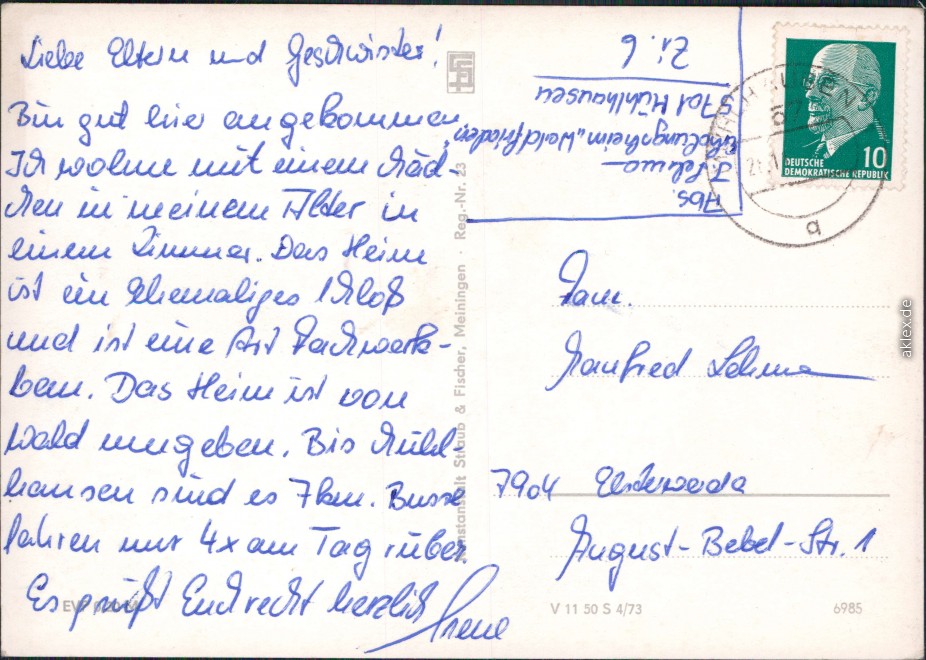 Liebe Eltern und Geschwister!
Bin gut hier angekommen.
Ich wohne mit einem Mäd-
chen in meinem Alter in
einem Zimmer. Das Heim
ist ein Ehemaliges Schloß
und ist eine Art Fachwerk-
bau. Das Heim ist von
Wald umgeben. Bis Mühl-
hausen sind es 7km. Busse
fahren nur 4x am Tag rüber.
Es grüßt Euch recht herzlich
Irene
Abs.
I. Lehma
Erholungsheim "Waldfrieden"
5701 Mühlhausen
Zi. 6
DEUTSCHE
DEMOKRATISCHE REPUBLIK
10
Fam.
Manfred Lehma
7904 Elsterwerda
August-Bebel-Str. 1
Straub & Fischer, Meiningen · Reg.-Nr. 23
V 11 50 S 4/73
6985
aklex.de